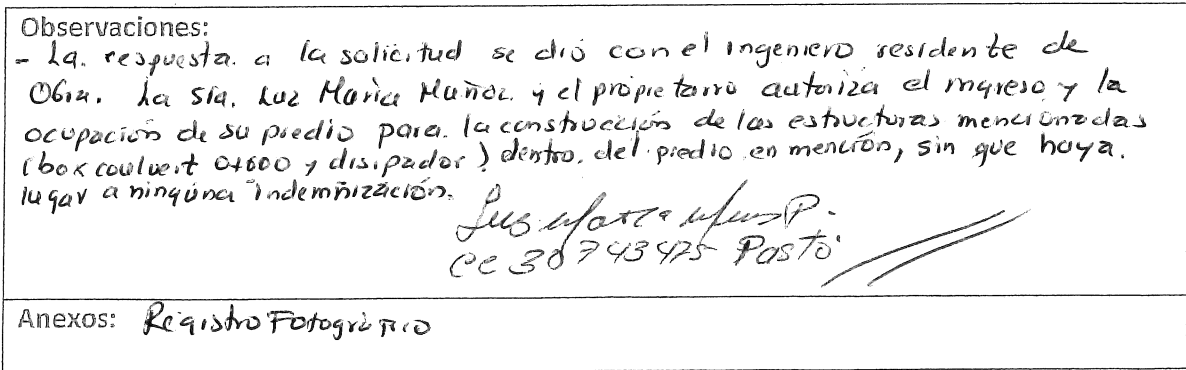 Observaciones:
- La. respuesta. a la solicitud se dió con el ingeniero residente de
Obra. La Sra. Luz Maria Muñoz. y el propietario autoriza el ingreso y la
ocupación de su predio para. la construcción de las estructuras mencionadas
(box coulvert 0+600 y disipador) dentro. del predio en mención, sin que haya.
lugar a ninguna indemnización.
Luz P.
CC 30743475 Pasto
Anexos: Registro Fotográfico